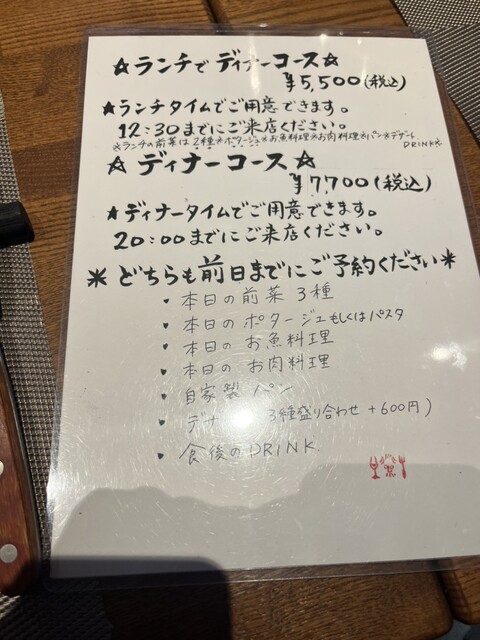 ☆ランチで ディナーコース☆
¥5,500(税込)
★ランチタイムでご用意できます。
12:30までにご来店ください。
※ランチの前菜は2種※ポタージュ※お魚料理※お肉料理※パン※デザート
DRINK※
☆ ディナーコース☆
¥7,700(税込)
★ディナータイムでご用意できます。
20:00までにご来店ください。
＊どちらも前日までにご予約ください＊
♥ 本日の前菜3種
♥ 本日の ポタージュもしくはパスタ
♥ 本日の お魚料理
♥ 本日の お肉料理
♥ 自家製 パン
♥ 3種盛り合わせ +600円)
♥ 食後のDRINK